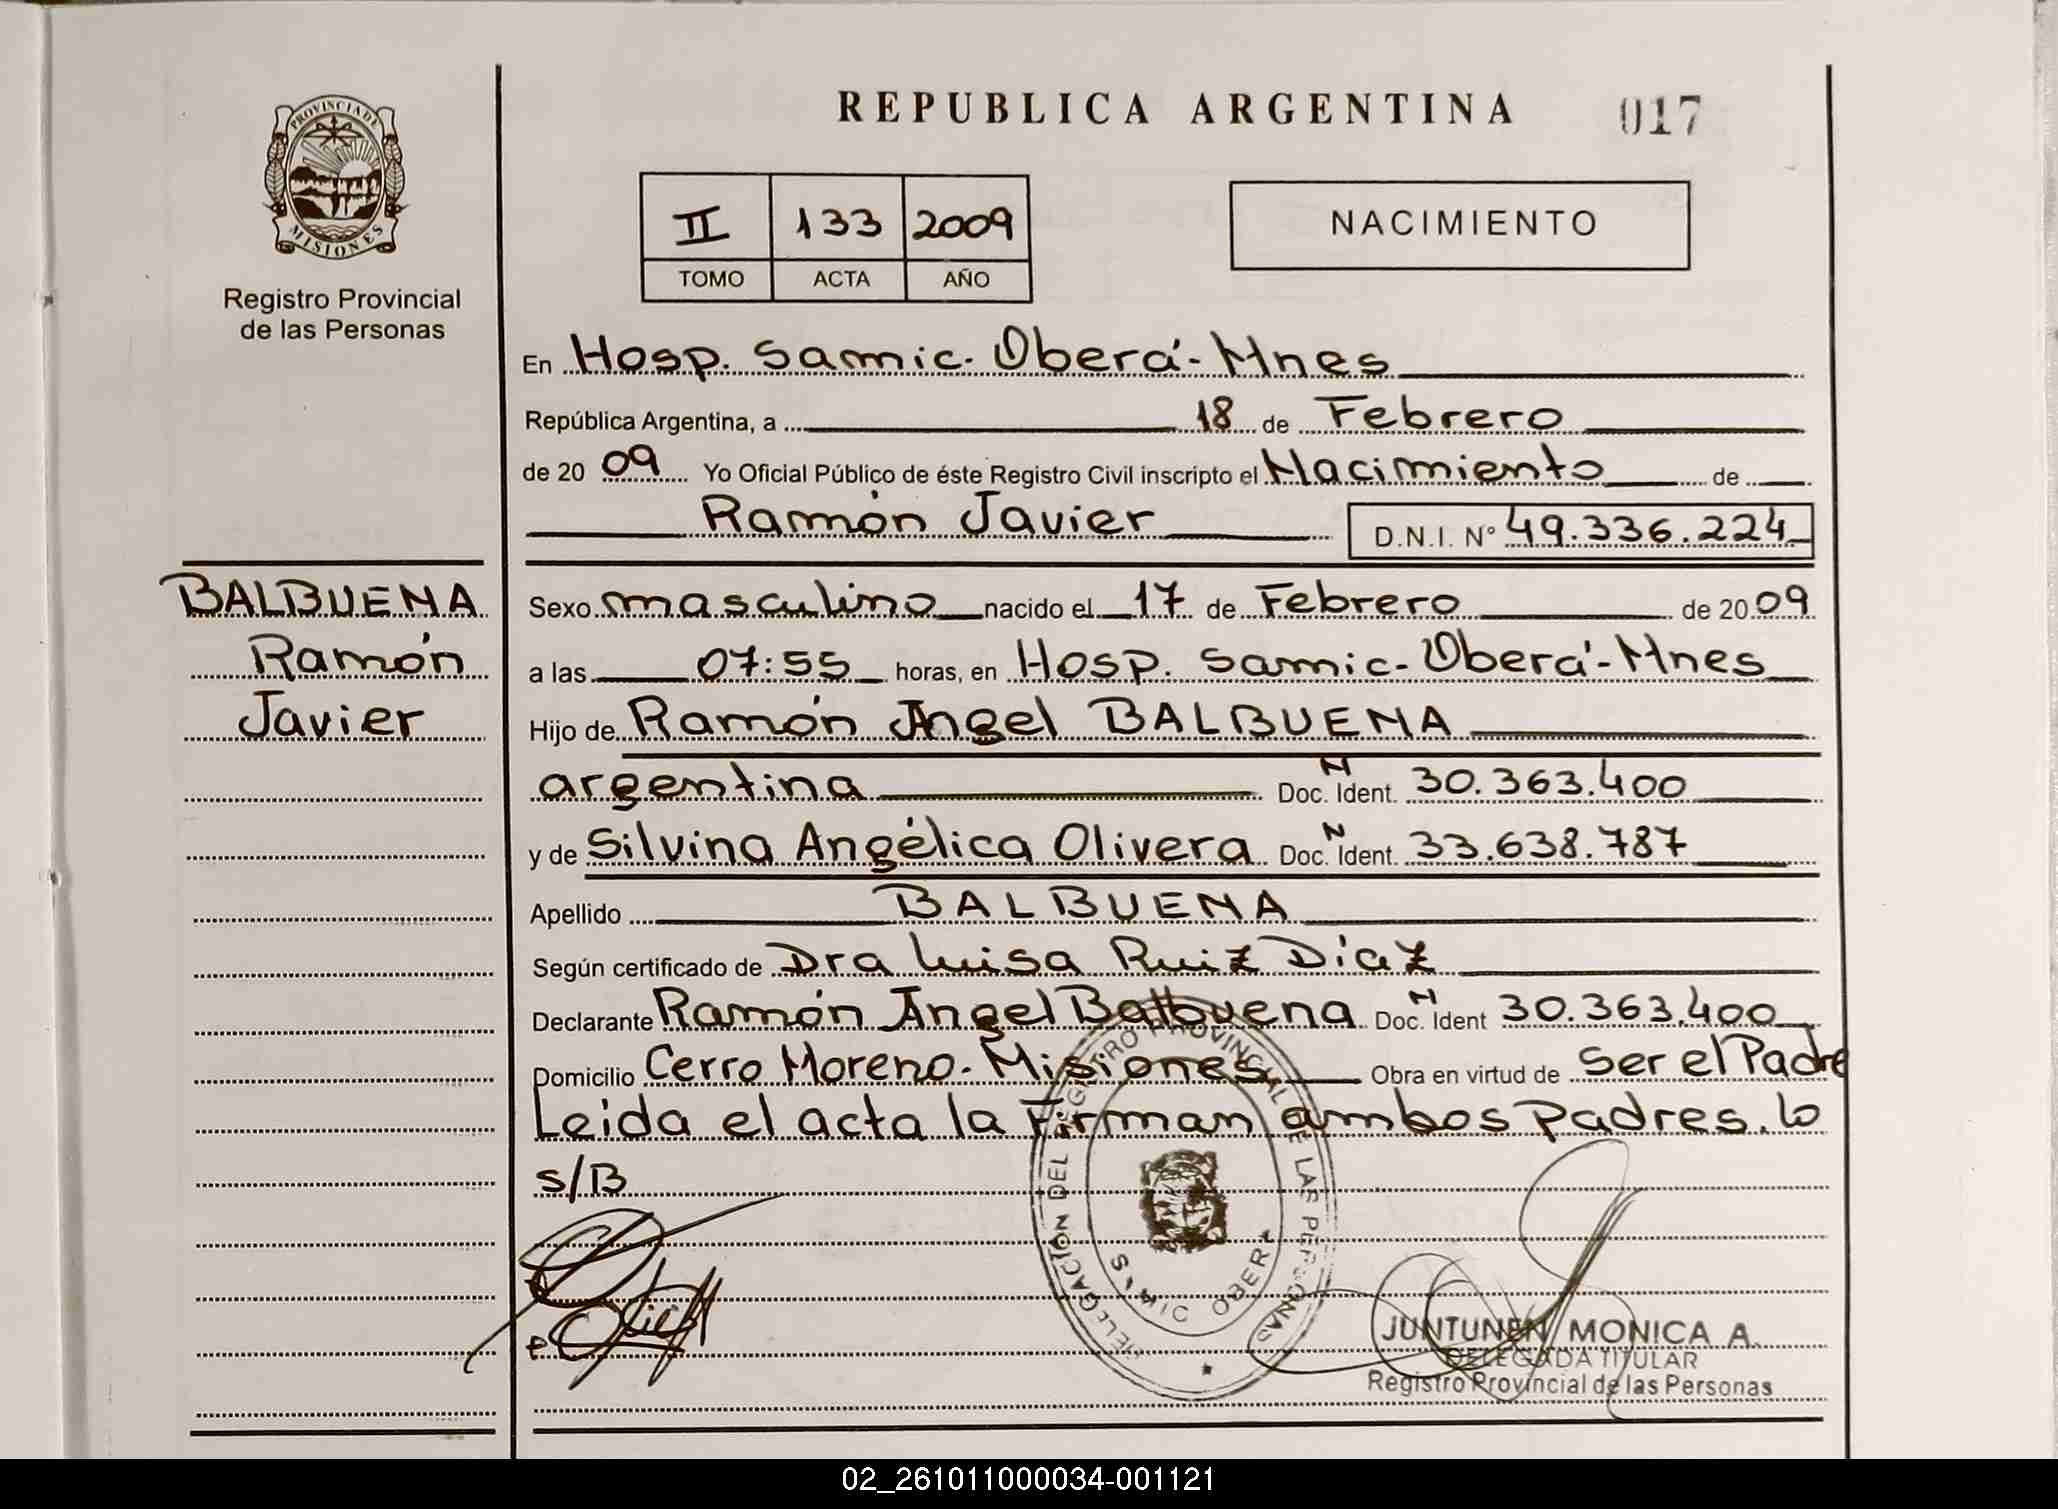 REPUBLICA ARGENTINA 017
PROVINCIA DE MISIONES
Registro Provincial
de las Personas
II 133 2009
TOMO ACTA AÑO
NACIMIENTO
En Hosp. Samic. Oberá-Mnes
República Argentina, a 18 de Febrero
de 20 09 Yo Oficial Público de éste Registro Civil inscripto el Nacimiento de
Ramón Javier D.N.I. N° 49.336.224
BALBUENA
Ramón
Javier
Sexo masculino nacido el 17 de Febrero de 20 09
a las 07:55 horas, en Hosp. Samic-Oberá-Mnes
Hijo de Ramón Angel BALBUENA
argentina Doc. N Ident. 30.363.400
y de Silvina Angélica Olivera Doc. N Ident. 33.638.787
Apellido BALBUENA
Según certificado de Dra Luisa Ruiz Díaz
Declarante Ramón Angel Balbuena Doc. N Ident 30.363.400
Domicilio Cerro Moreno-Misiones Obra en virtud de ser el Padre
Leida el acta la Firman ambos Padres. lo
s/B
DELEGACION DEL REGISTRO PROVINCIAL DE LAS PERSONAS
OBERA
JUNTUNEN MONICA A.
DELEGADA TITULAR
Registro Provincial de las Personas
02_261011000034-001121